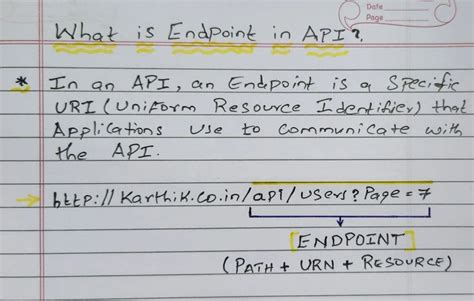 Date
Page
What is Endpoint in API?
* In an API, an Endpoint is a Specific
URI (Uniform Resource Identifier) that
Applications use to communicate with
the API.
→ http://Karthik.co.in/api/users?Page=7
[ENDPOINT]
(PATH + URN + RESOURCE)